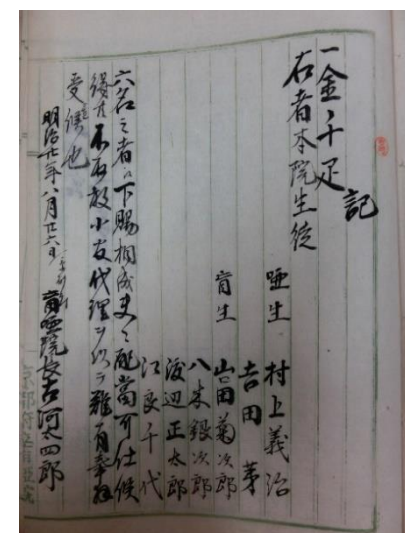 記
一金千疋
右者本院生徒
唖生 村上義治
吉田 茅
盲生 山田菊次郎
八木銀次郎
渡辺正太郎
江良千代
六名之者江下賜相成夫々配当可仕候
得共不取敢小友代理ヲ以テ難有奉拝
受候也
明治十一年八月廿六日
盲唖院長古河太四郎